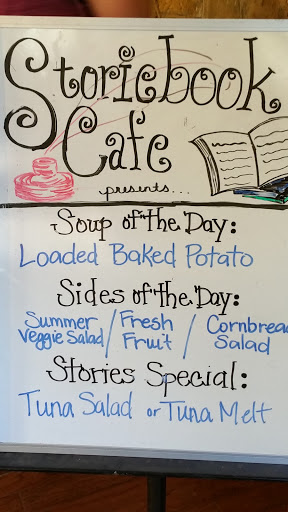 Storiebook
Cafe
presents...
Soup of the Day:
Loaded Baked Potato
Sides of the Day:
Summer Veggie Salad / Fresh Fruit / Cornbread Salad
Stories Special:
Tuna Salad or Tuna Melt